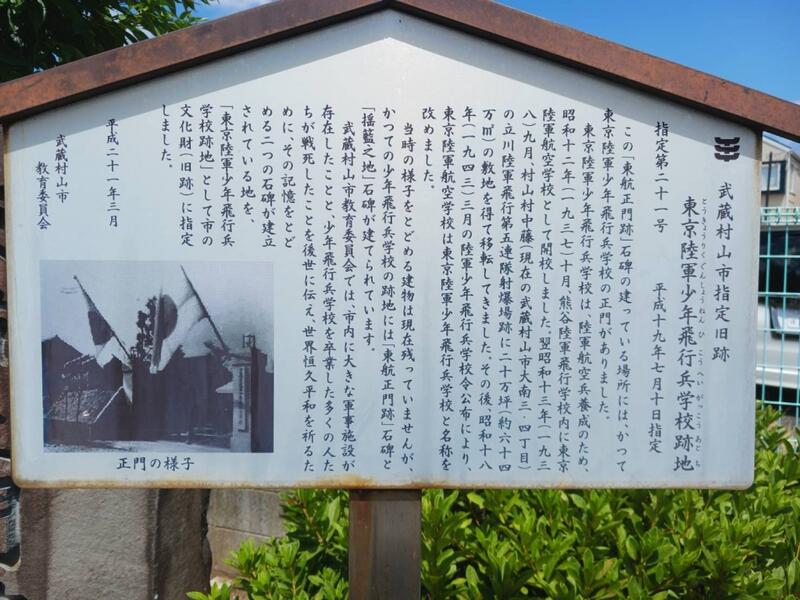 武蔵村山市指定旧跡
とうきょうりくぐんしょうねんひ こうへいがっこうあとち
東京陸軍少年飛行兵学校跡地
指定第二十一号 平成十九年七月十日指定
この「東航正門跡」石碑の建っている場所には、かつて
東京陸軍少年飛行兵学校の正門がありました。
東京陸軍少年飛行兵学校は、陸軍航空兵養成のため、
昭和十二年(一九三七)十月、熊谷陸軍飛行学校内に東京
陸軍航空学校として開校しました。翌昭和十三年(一九三
八)九月、村山村中藤(現在の武蔵村山市大南三・四丁目)
の立川陸軍飛行第五連隊射爆場跡に二十万坪(約六十四
万㎡)の敷地を得て移転してきました。その後、昭和十八
年(一九四三)三月の陸軍少年飛行兵学校令公布により、
東京陸軍航空学校は東京陸軍少年飛行兵学校と名称を
改めました。
当時の様子をとどめる建物は現在残っていませんが、
かつての少年飛行兵学校の跡地には「東航正門跡」石碑と
「揺籃之地」石碑が建てられています。
武蔵村山市教育委員会では、市内に大きな軍事施設が
存在したことと、少年飛行兵学校を卒業した多くの人た
ちが戦死したことを後世に伝え、世界恒久平和を祈るた
めに、その記憶をとど
める二つの石碑が建立
されている地を、
「東京陸軍少年飛行兵
学校跡地」として市の
文化財(旧跡)に指定
しました。
平成二十一年三月
武蔵村山市
教育委員会
正門の様子